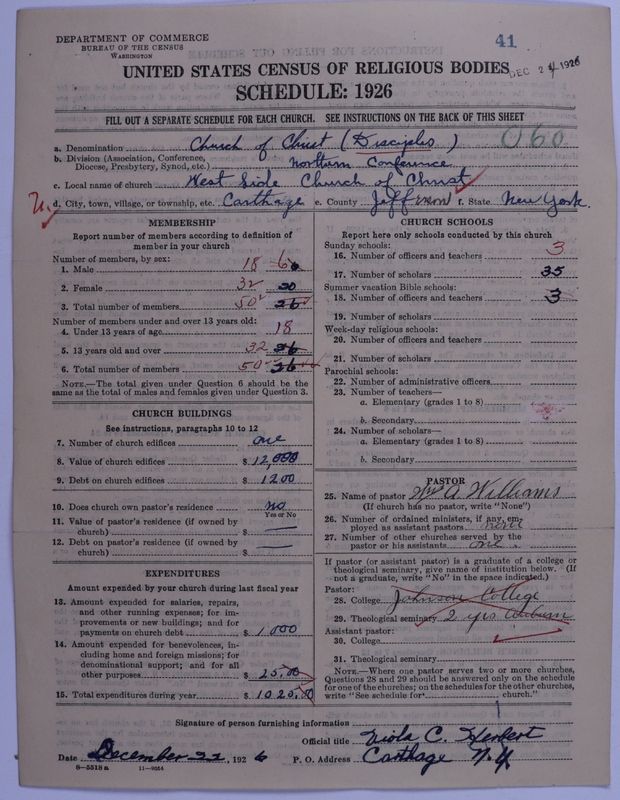 DEPARTMENT OF COMMERCE
BUREAU OF THE CENSUS
WASHINGTON
41
DEC 24 1926
UNITED STATES CENSUS OF RELIGIOUS BODIES
SCHEDULE: 1926
FILL OUT A SEPARATE SCHEDULE FOR EACH CHURCH. SEE INSTRUCTIONS ON THE BACK OF THIS SHEET
a. Denomination Church of Christ (Disciples) 060
b. Division (Association, Conference, Diocese, Presbytery, Synod, etc.) Northern Conference
c. Local name of church West Side Church of Christ
d. City, town, village, or township, etc. Carthage e. County Jefferson f. State New York.
MEMBERSHIP
Report number of members according to definition of
member in your church
Number of members, by sex:
1. Male 18 6
2. Female 32 20
3. Total number of members 50 26
Number of members under and over 13 years old:
4. Under 13 years of age 18
5. 13 years old and over 32 26
6. Total number of members 50 26
NOTE.—The total given under Question 6 should be the
same as the total of males and females given under Question 3.
CHURCH BUILDINGS
See instructions, paragraphs 10 to 12
7. Number of church edifices one
8. Value of church edifices $ 12,000
9. Debt on church edifices $ 1200
10. Does church own pastor's residence no
Yes or No
11. Value of pastor's residence (if owned by
church) $ —
12. Debt on pastor's residence (if owned by
church) $ —
EXPENDITURES
Amount expended by your church during last fiscal year
13. Amount expended for salaries, repairs,
and other running expenses; for im-
provements or new buildings; and for
payments on church debt $ 1000
14. Amount expended for benevolences, in-
cluding home and foreign missions; for
denominational support; and for all
other purposes $ 25.00
15. Total expenditures during year $ 1025.00
CHURCH SCHOOLS
Report here only schools conducted by this church
Sunday schools:
16. Number of officers and teachers 3
17. Number of scholars 35
Summer vacation Bible schools:
18. Number of officers and teachers 3
19. Number of scholars
Week-day religious schools:
20. Number of officers and teachers
21. Number of scholars
Parochial schools:
22. Number of administrative officers
23. Number of teachers—
a. Elementary (grades 1 to 8)
b. Secondary
24. Number of scholars—
a. Elementary (grades 1 to 8)
b. Secondary
PASTOR
25. Name of pastor Wm A. Williams
(If church has no pastor, write "None")
26. Number of ordained ministers, if any, em-
ployed as assistant pastors none
27. Number of other churches served by the
pastor or his assistants one.
If pastor (or assistant pastor) is a graduate of a college or
theological seminary, give name of institution below. (If
not a graduate, write "No" in the space indicated.)
Pastor:
28. College Johnson College
29. Theological seminary 2 yrs Auburn
Assistant pastor:
30. College
31. Theological seminary
NOTE.—Where one pastor serves two or more churches,
Questions 28 and 29 should be answered only on the schedule
for one of the churches; on the schedules for the other churches,
write "See schedule for church."
Signature of person furnishing information
Official title Viola C. Herbert
Date December 22, 1926 P. O. Address Carthage N.Y.
8—5518a 11—9264